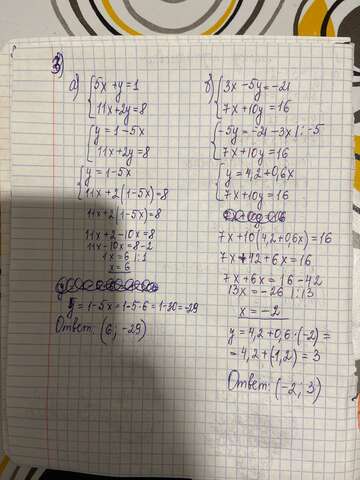 3)
а) { 5x + y = 1
11x + 2y = 8
{ y = 1 - 5x
11x + 2y = 8
{ y = 1 - 5x
11x + 2(1 - 5x) = 8
11x + 2(1 - 5x) = 8
11x + 2 - 10x = 8
11x - 10x = 8 - 2
1x = 6 | : 1
x = 6
y = 1 - 5x = 1 - 5·6 = 1 - 30 = -29
Ответ: (6; -29)
б) { 3x - 5y = -21
7x + 10y = 16
{ -5y = -21 - 3x | : -5
7x + 10y = 16
{ y = 4,2 + 0,6x
7x + 10y = 16
7x + 10(4,2 + 0,6x) = 16
7x + 42 + 6x = 16
7x + 6x = 16 - 42
13x = -26 | : 13
x = -2
y = 4,2 + 0,6·(-2) =
= 4,2 + (-1,2) = 3
Ответ: (-2; 3)